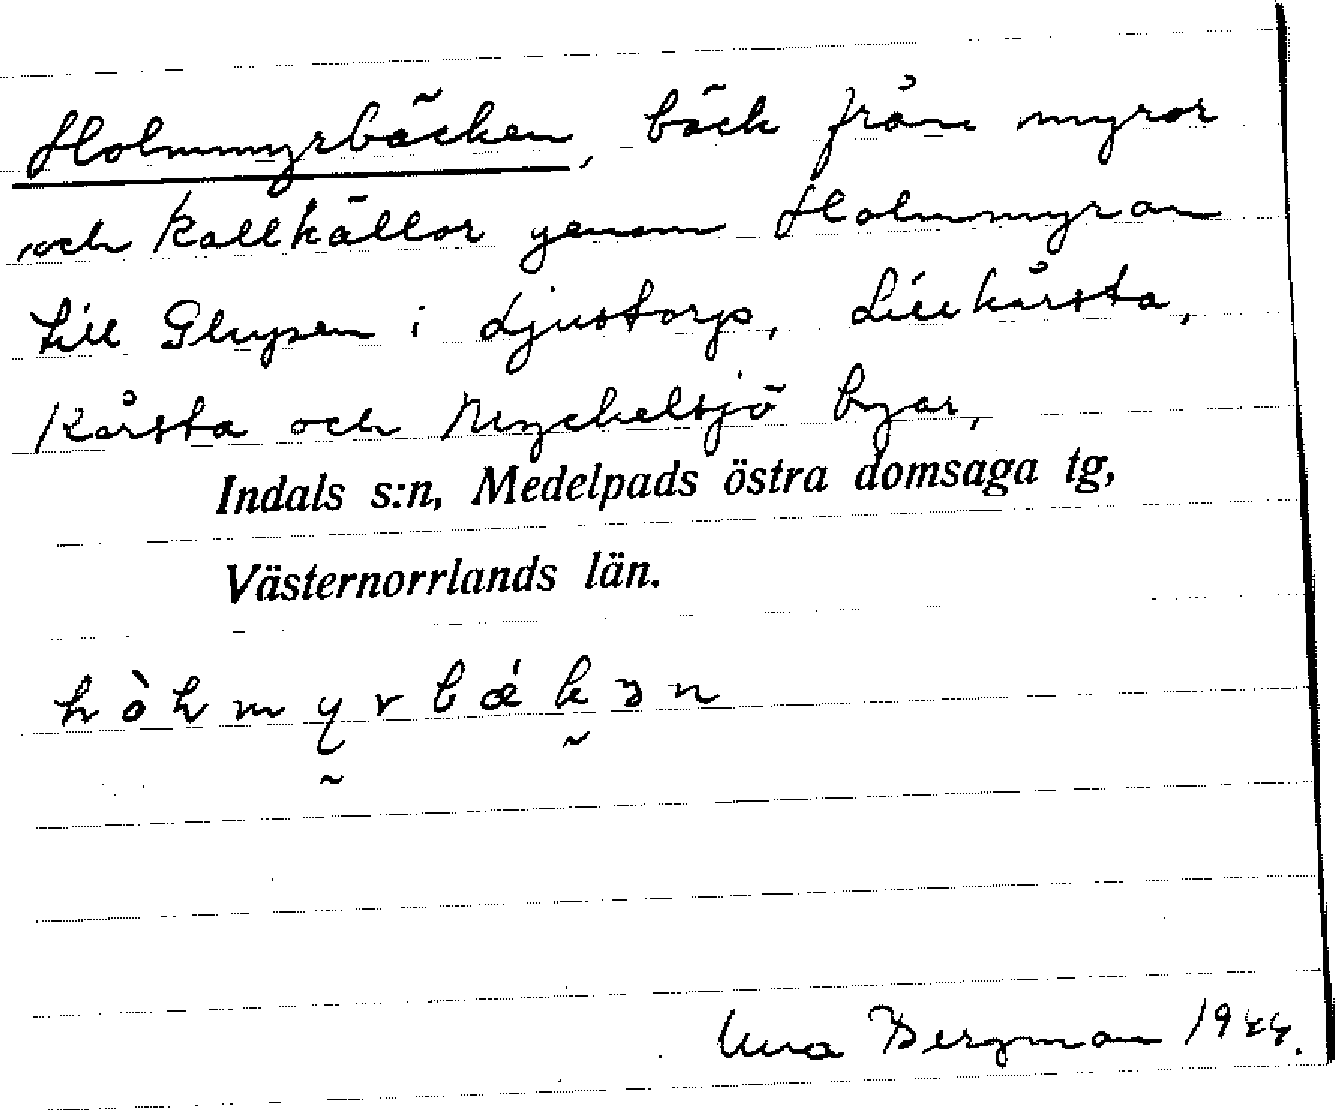 Holmmyrbäcken, bäck från myror
och kallkällor genom Holmmyran
till Glupen i Ljustorp, Lillkårsta,
Kårsta och Myckelsjö byar,
Indals s:n, Medelpads östra domsaga tg,
Västernorrlands län.
Bergman 1944.